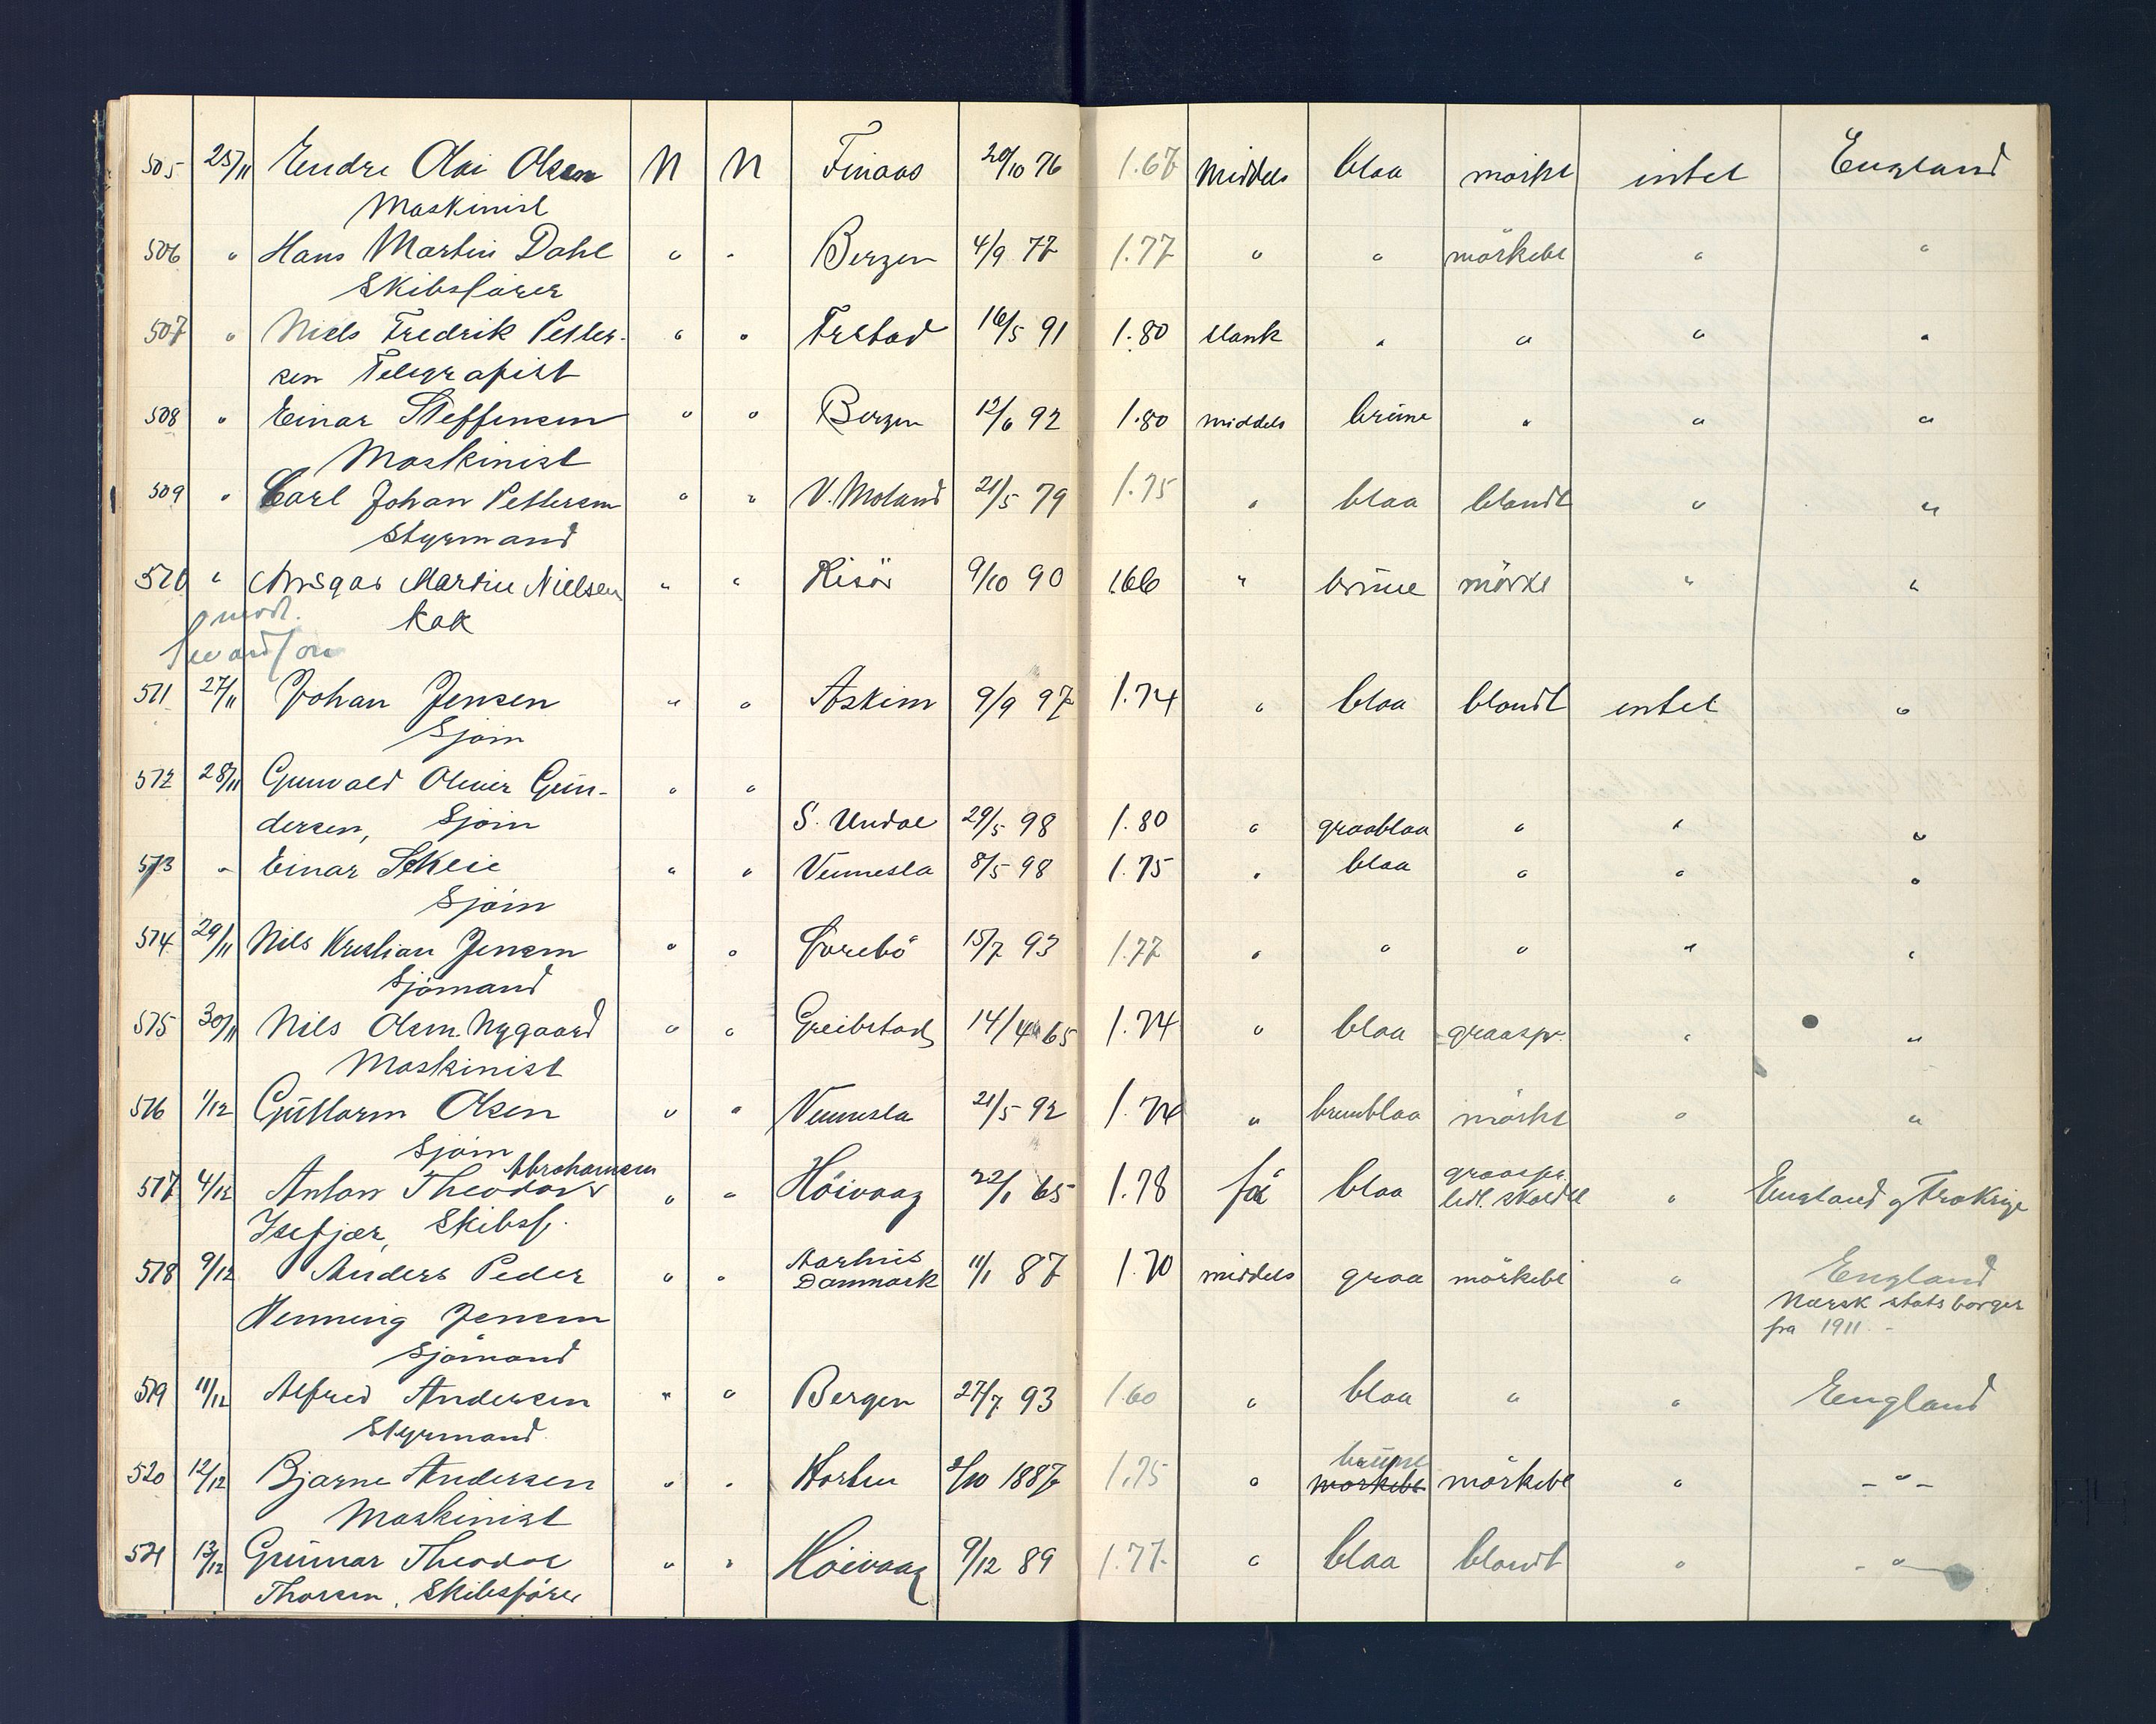 505 25/11 Endre Olai Olsen N N Finaas 20/10 76 1.67 Middels blaa mörkt intet England
Maskinist
506 " Hans Martin Dahl " " Bergen 4/9 77 1.77 " " mörkebl " "
Skibsförer
507 " Niels Fredrik Petter- " " Frstad 16/5 91 1.80 slank " " " "
sen Telegrafist
508 " Einar Steffensen " " Bergen 12/6 92 1.80 middels brune " " "
Maskinist
509 " Carl Johan Pettersen " " V. Moland 21/5 79 1.75 " blaa blondt " "
Styrmand
510 " Ansgar Martin Nielsen " " Risör 9/10 90 166 " brune mörkt " "
Kok
511 27/11 Johan Jensen " " Askim 9/9 97 1.74 " blaa blondt intet "
Sjöm
512 28/11 Gunvald Oliver Gun- " "
dersen, Sjöm S. Undal 29/5 98 1.80 " graablaa " " "
513 " Einar Skeie " " Vennesla 8/5 98 1.75 " blaa " " "
Sjöm
514 29/11 Nils Kristian Jensen " " Øvrebö 15/7 93 1.77 " " " " "
Sjömand
515 30/11 Nils Olsen Nygaard " " Greibstad 14/4 65 1.74 " blaa graaspr. " "
Maskinist
516 1/12 Guttorm Olsen " " Vennesla 21/5 92 1.74 " brunblaa mörkt " "
Sjöm
Abrahamsen
517 4/12 Anton Theodor " " Höivaag 22/1 65 1.78 blaa graaspr. lidt skaldt " England og Frakrige
Isefjær, Skibsf.
518 9/12 Anders Peder " " Aarhus Danmark 11/1 87 1.70 middels graa mörkebl " England
Henning Jensen Norsk statsborger
Sjömand fra 1911 -
519 11/12 Alfred Andersen " " Bergen 27/7 93 1.60 " blaa " " England
Styrmand
520 12/12 Bjarne Andersen " " Horten 2/10 1887 1.75 " brune mörkebl mörkebl " - " -
Maskinist
521 13/12 Gunnar Theodor " " Höivaag 9/12 89 1.77 " blaa blondt " - " -
Thorsen, Skibsförer